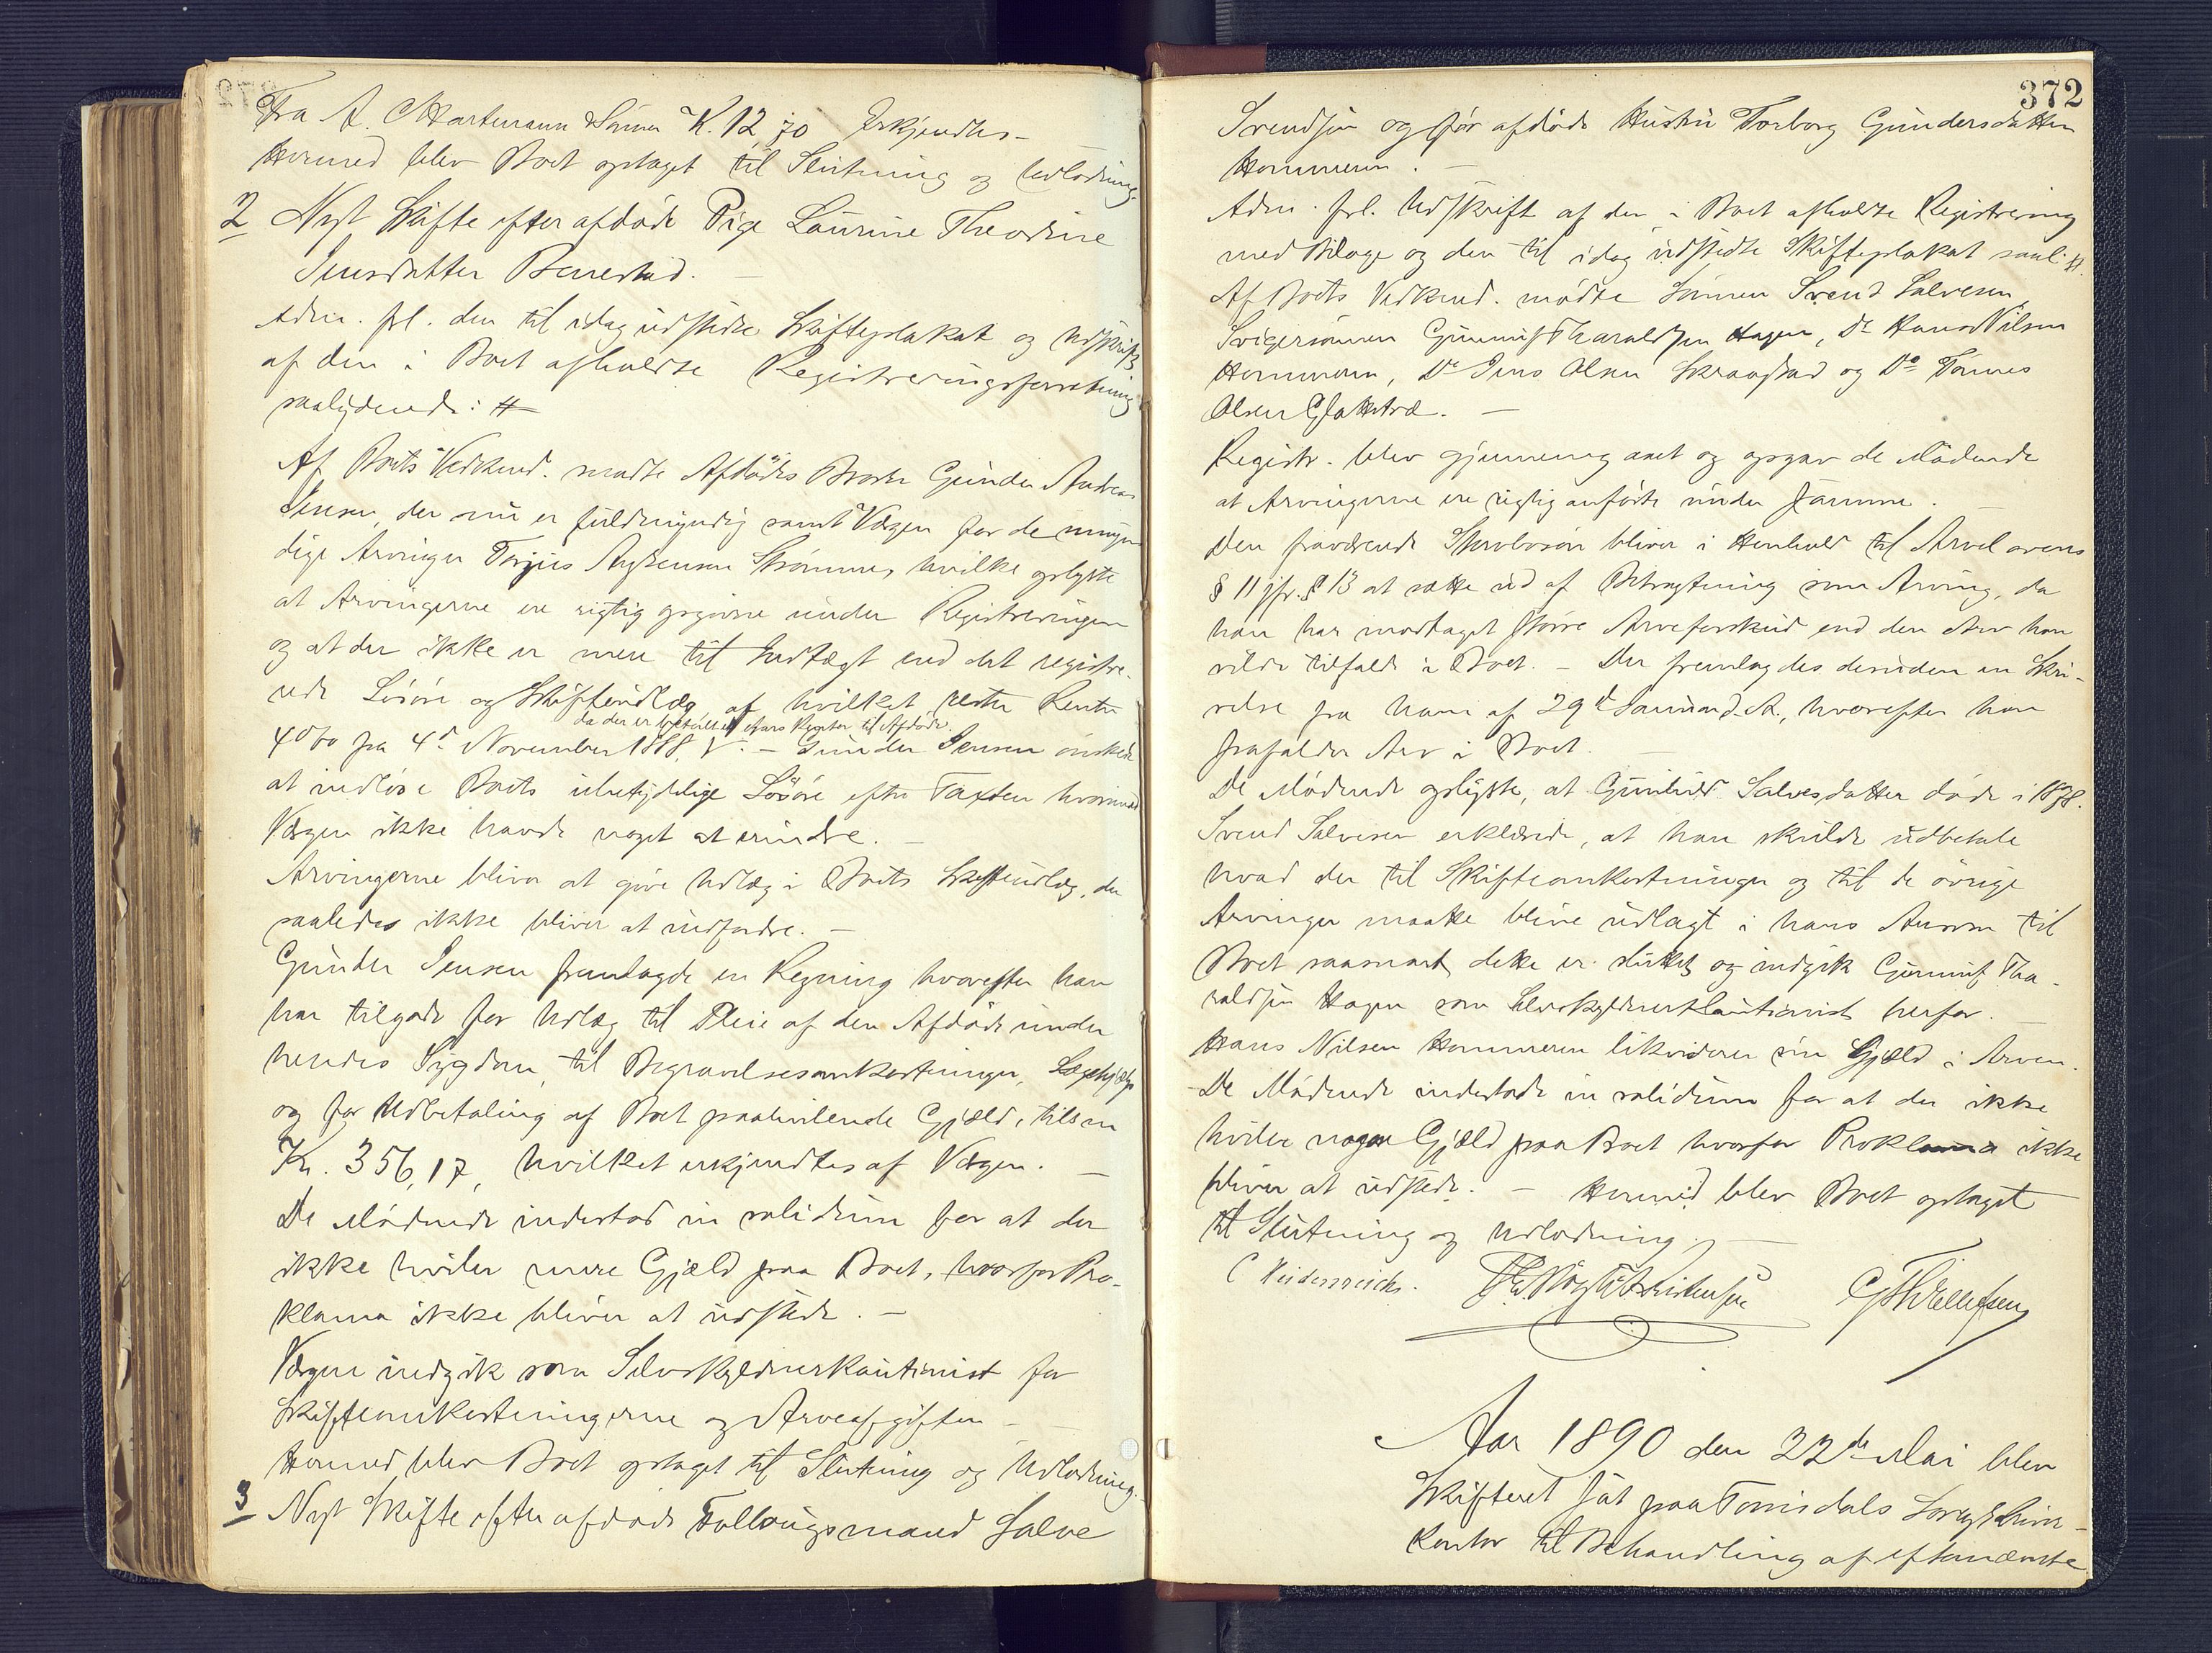 Fra A. C. Hartmann & Sönner K. 12,70 Erkjendtes –
Hermed blev Boet optaget til Slutning og Udlodning.
2 Nyt Skifte efter afdöde Pige Laurine Theodine
Jensdatter Benestad. –
Adm. frl. den til idag udstedte Skifteplakat og Udskrift
af den i Boet afholdte Registreringsforretning
saalydende: #
Af Boets Vedkend. mødte Afdödes Broder Gunder Andreas
Jensen, der nu er fuldmyndig samt Værgen for de umyn
dige Arvinger Torjus Strømme, hvilke oplyste
at Arvingerne ere rigtig opgivne under Registreringen
og at der ikke er mere til Indtægt end det registre-
rede Lösöre og Skifteudlæg, af hvilket rester Renter
da der er betalt et Aars Renter til Afdöde.
4 % fra 4de November 1888, V. – Gunder Jensen önskede
at indløse Boets ubetydelige Lösöre efter Taxten hvorimod
Værgen ikke havde noget at erindre. –
Arvingerne bliver at give Udlæg i Boets Skifteudlæg, der
saaledes ikke bliver at indfordre. –
Gunder Jensen fremlagde en Regning hvorefter han
har tilgode for Udlæg til Pleie af den Afdöde under
hendes Sygdom, til Begravelsesomkostninger, Lægehjælp
og for Udbetaling af Boet paahvilende Gjæld, tilsm
Kr. 356,17, hvilket erkjendtes af Værgen. –
De Mödende indestod in solidum for at der
ikke hviler mere Gjæld paa Boet, hvorfor Pro-
klama ikke bliver at udstede. –
Værgen indgik som Selvskyldnerkautionist for
Skifteomkostningerne og Arveafgiften –
Hermed blev Boet optaget til Slutning og Udlodning.
3 Nyt Skifte efter afdöde Follougsmand Salve
372
Svendsen og för afdöde Hustru Torborg Gundersdatter
Hommeren. –
Adm. frl. Udskrift af den i Boet afholdte Registrering
med Bilage og den til idag udstedte Skifteplakat saal. #.
Af Boets Vedkend. mødte Sönnen Svend Salvesen,
Svigersönnen Gunnuf Tharaldsen Hagen, Do Hans Nilsen
Hommeren, Do Jens Olsen Skraastad og Do Tönnes
Olsen Glatteträ. –
Registr. blev gjennemgaaet og opgav de Mödende
at Arvingerne ere rigtig anförte under samme. –
Den fraværende bliver i Henhold til Arvelovens
§ 11 jfr. § 13 at sætte ud af Betragtning som Arving, da
han har modtaget större Arveforskud end den Arv han
vilde tilfalde i Boet. – Der fremlagdes desuden en Skri-
velse fra ham af 29de Januar d. A., hvorefter han
frafalder Arv i Boet. –
De Mödende oplyste, at Gunhild Salvesdatter döde i 1878.
Svend Salvesen erklærede, at han skulde udbetale
hvad der til Skifteomkostninger og til de övrige
Arvinger maatte blive udlagt i hans Ansvar til
Boet saasnart dette er sluttet og indgik Gunnuf Tha-
raldsen Hagen som Selvskyldnerkautionist herfor. –
Hans Nilsen Hommeren likviderer sin Gjæld i Arven.
De Mödende indestode in solidum for at der ikke
hviler nogen Gjæld paa Boet hvorfor Proklama ikke
bliver at udstede. – Hermed blev Boet optaget
til Slutning og Udlodning. –
C Heidenreich.
Aar 1890 den 22de Mai blev
Skifteret sat paa Torrisdals Sorenskriver-
kontor til Behandling af efternævnte